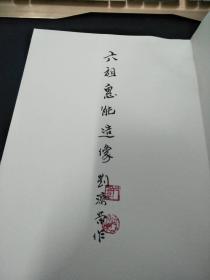 六祖惠能造像 刘济荣作